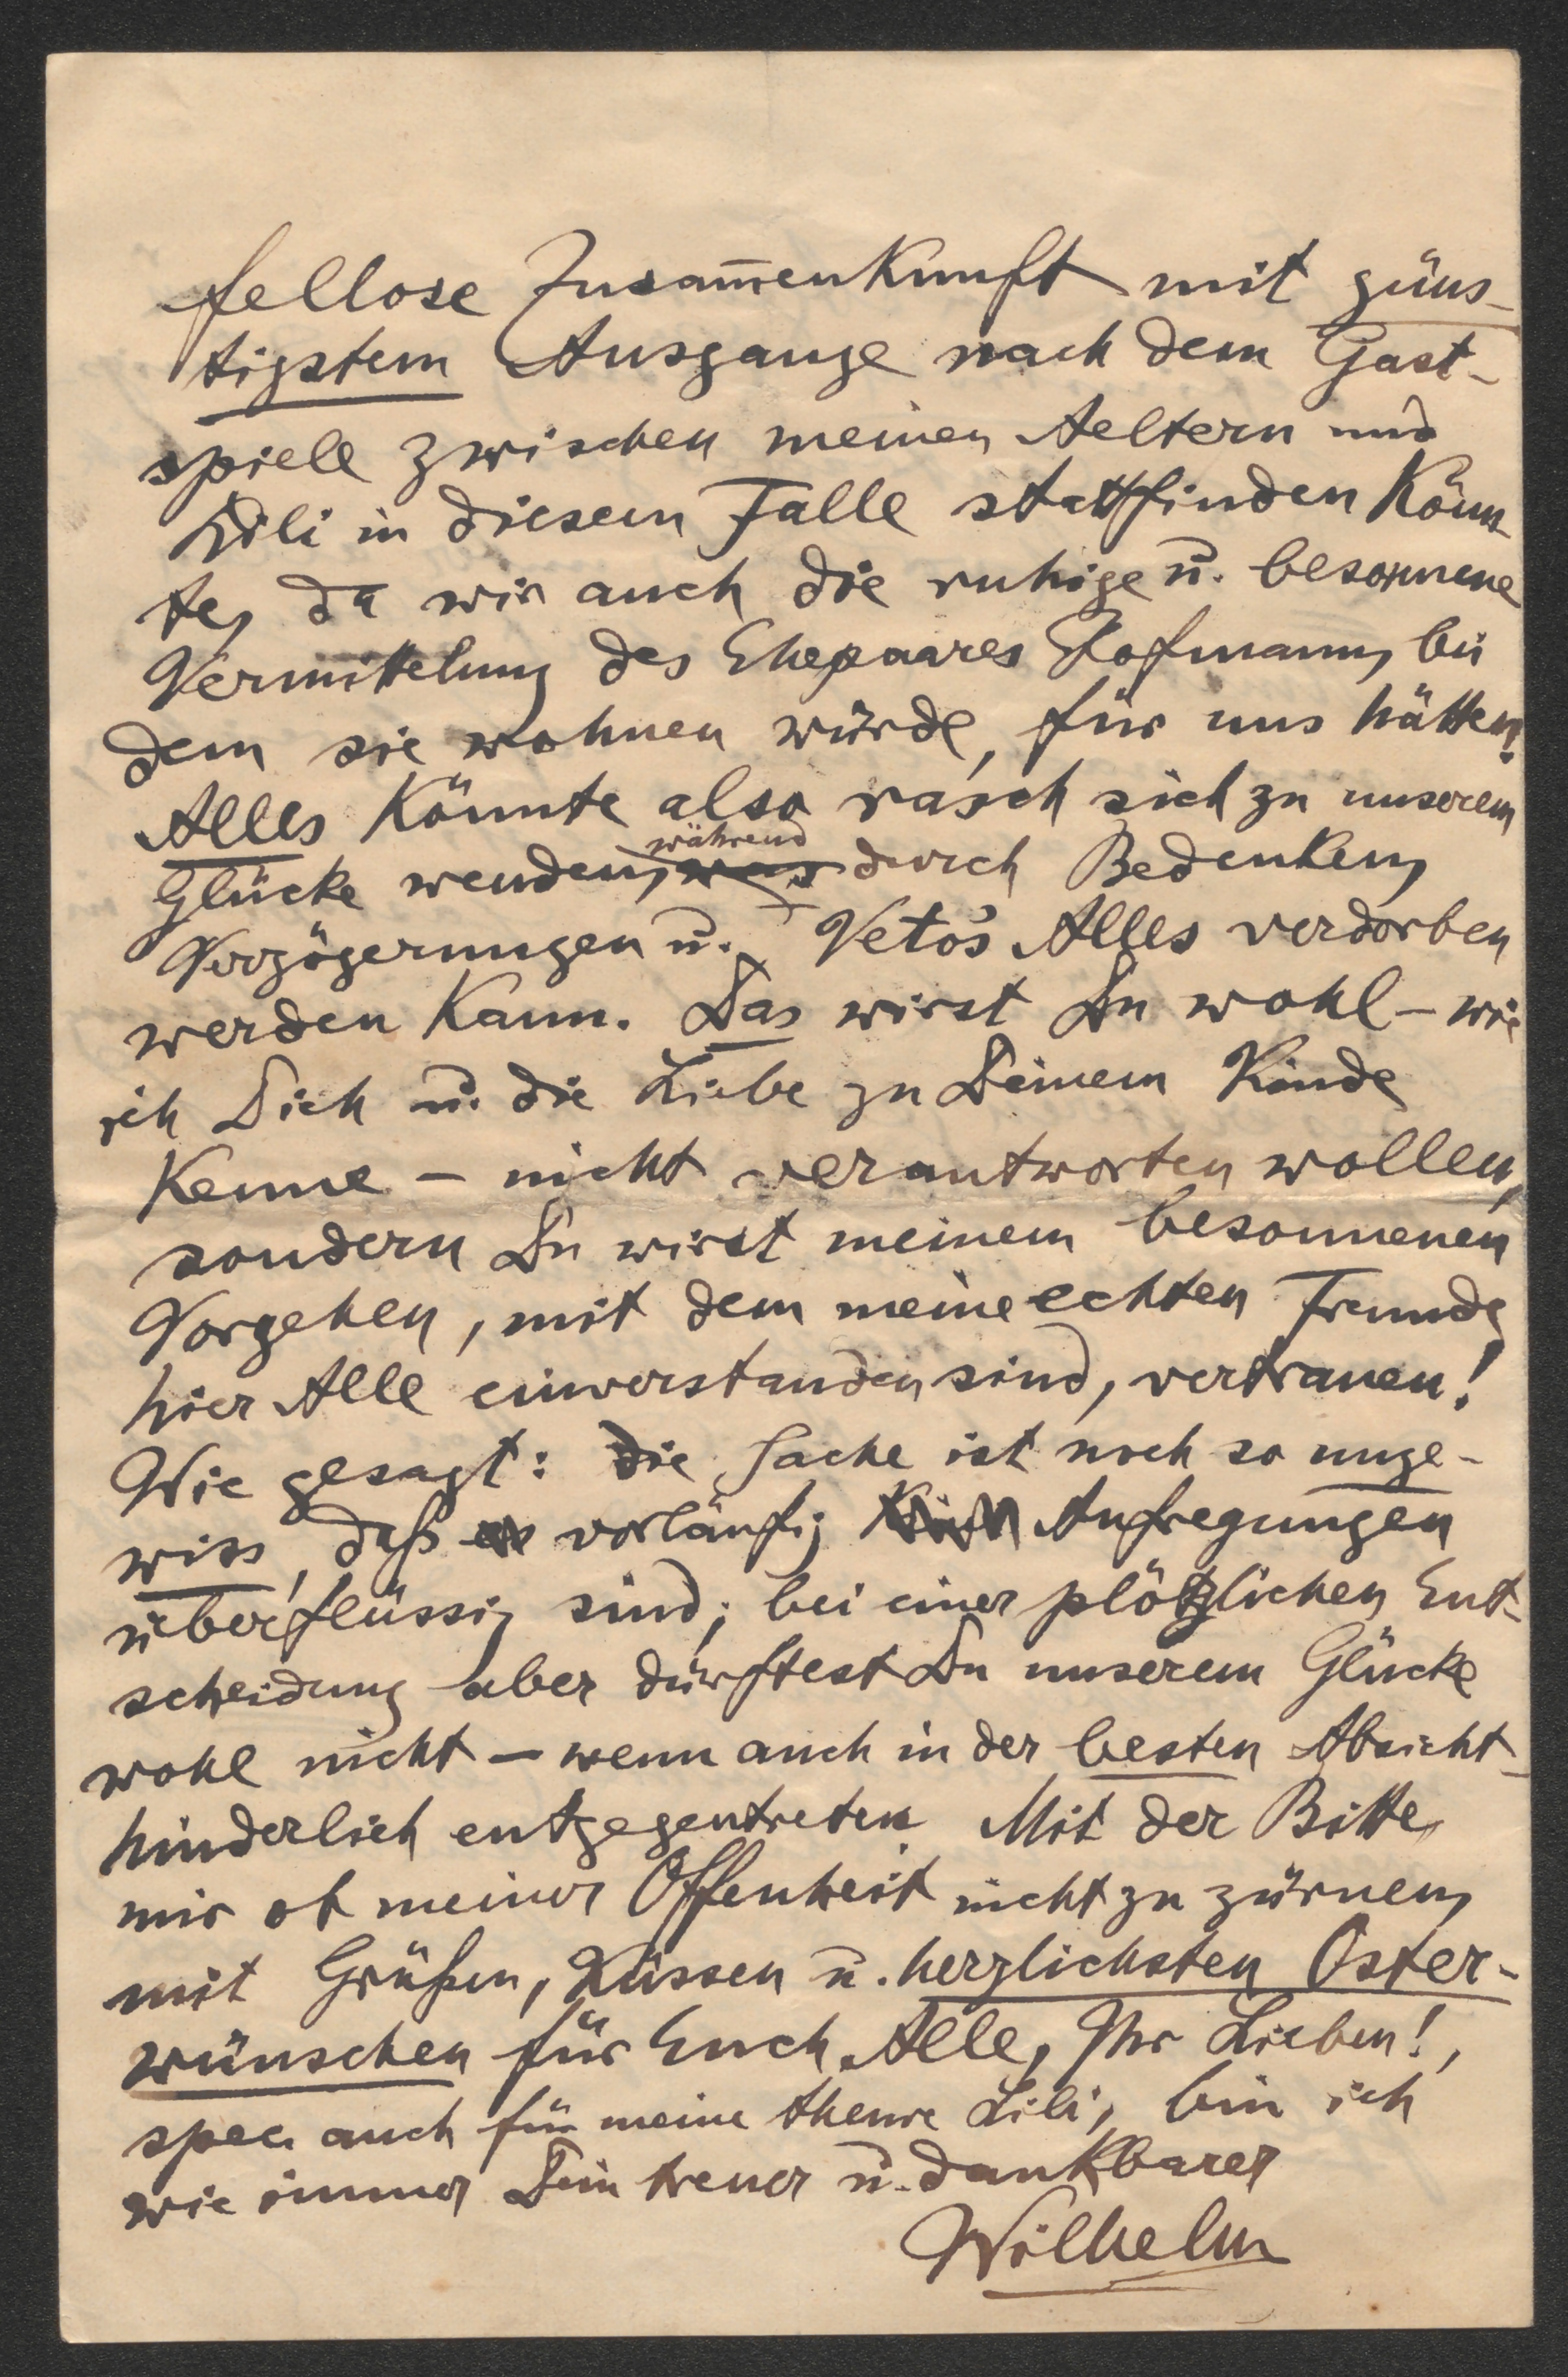 fellose Zusam̅enkunft mit güns-
tigstem Ausgange nach dem Gast-
spiele zwischen meinen Aeltern und
Lili in diesem Falle stattfinden könn-
te, da wir auch die ruhige u. besonnene
Vermittelung des Ehepaares Hofmann, bei
dem sie wohnen würde, für uns hätten.
Alles könnte also rasch sich zu unserem
Glücke wenden, was während durch Bedenken,
Verzögerungen u. Veto's Alles verdorben
werden kann. Das wirst Du wohl – wie
ich Dich u. die Liebe zu Deinem Kinde
kenne – nicht verantworten wollen,
sondern Du wirst meinem besonnenen
Vorgehen, mit dem meine echten Freunde
hier Alle einverstanden sind, vertrauen!
Wie gesagt: die Sache ist noch so unge-
wiss, daß vorläufig Aufregungen
überflüssig sind; bei einer plötzlichen Ent-
scheidung aber dürftest Du unserem Glücke
wohl nicht – wenn auch in der besten Absicht –
hinderlich entgegentreten. Mit der Bitte,
mir ob meiner Offenheit nicht zu zürnen,
mit Grüßen, Küssen u. herzlichsten Oster-
wünschen für Euch Alle, Ihr Lieben!,
spec. auch für meine theure Lili, bin ich
wie immer Dein treuer u. dankbarer
Wilhelm